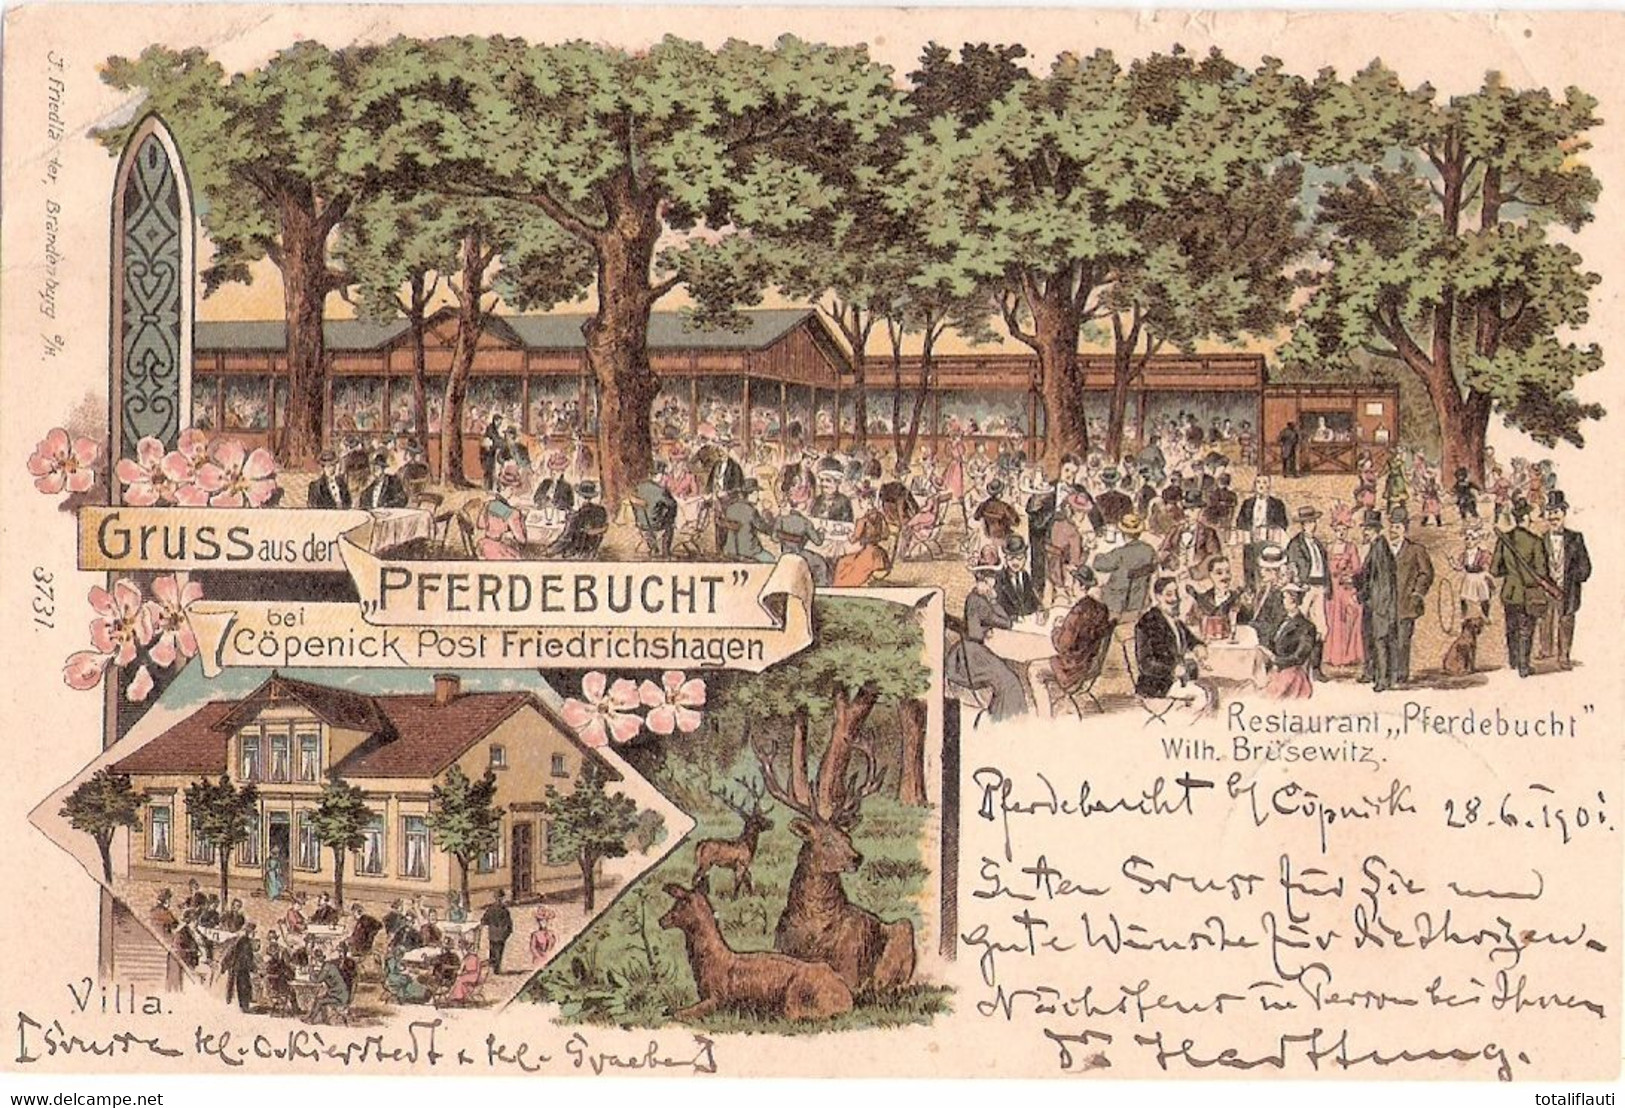 J. Friedlä der, Brandenburg a/H.
3731.
GRUSS aus der
„PFERDEBUCHT”
bei
Cöpenick Post Friedrichshagen
Restaurant „Pferdebucht”
Wilh. Brüsewitz.
Villa.
Pferdebucht b/ Cöpnick 28.6.1901.
Guten Gruss für Sie und
gute Wünsche für die
Nächstens in Person bei Ihnen
Dr Hartung.
[Grüsse an Frl. v. Kierstedt u Frl. Graeben]
totaliflauti
delcampe.net